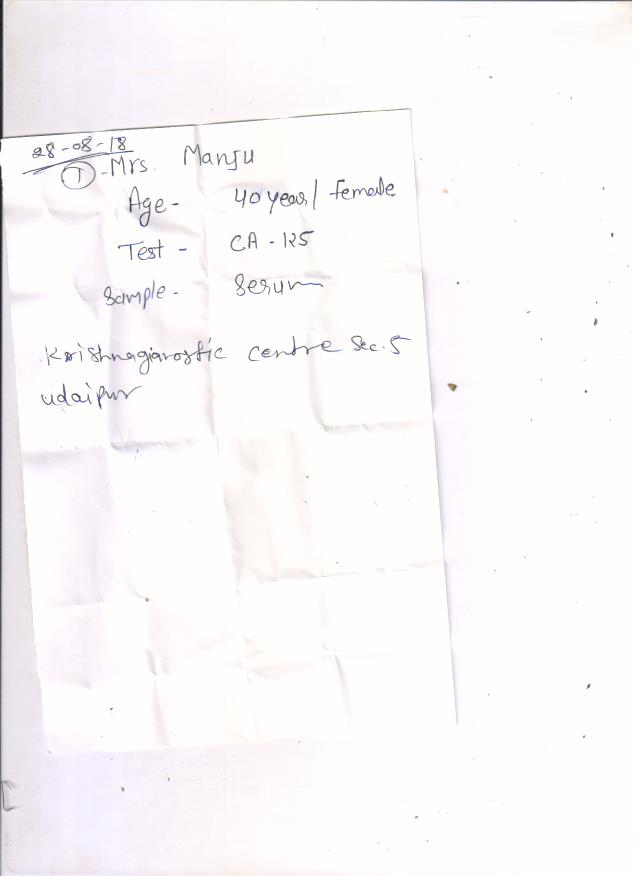 28-08-18
① - Mrs. Manju
Age - 40 year/ Female
Test - CA - 125
Sample - Serum
Krishnagianostic centre Sec. 5
udaipur